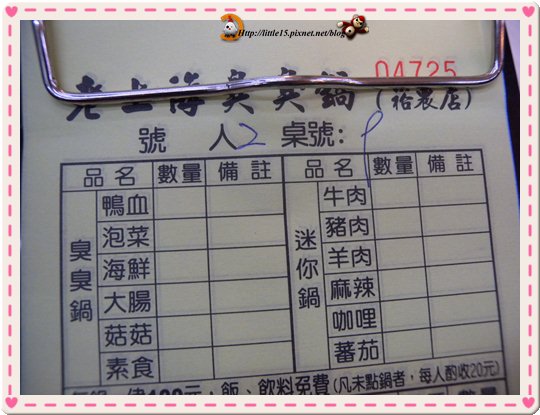 Http://little15.pixnet.net/blog
04725
老上海臭臭鍋(裕農店)
號 人2 桌號:9
品名 數量 備註 品名 數量 備註
臭臭鍋 迷你鍋
鴨血 牛肉
泡菜 豬肉
海鮮 羊肉
大腸 麻辣
菇菇 咖哩
素食 蕃茄
飯、飲料免費(凡未點鍋者,每人酌收20元)
數量